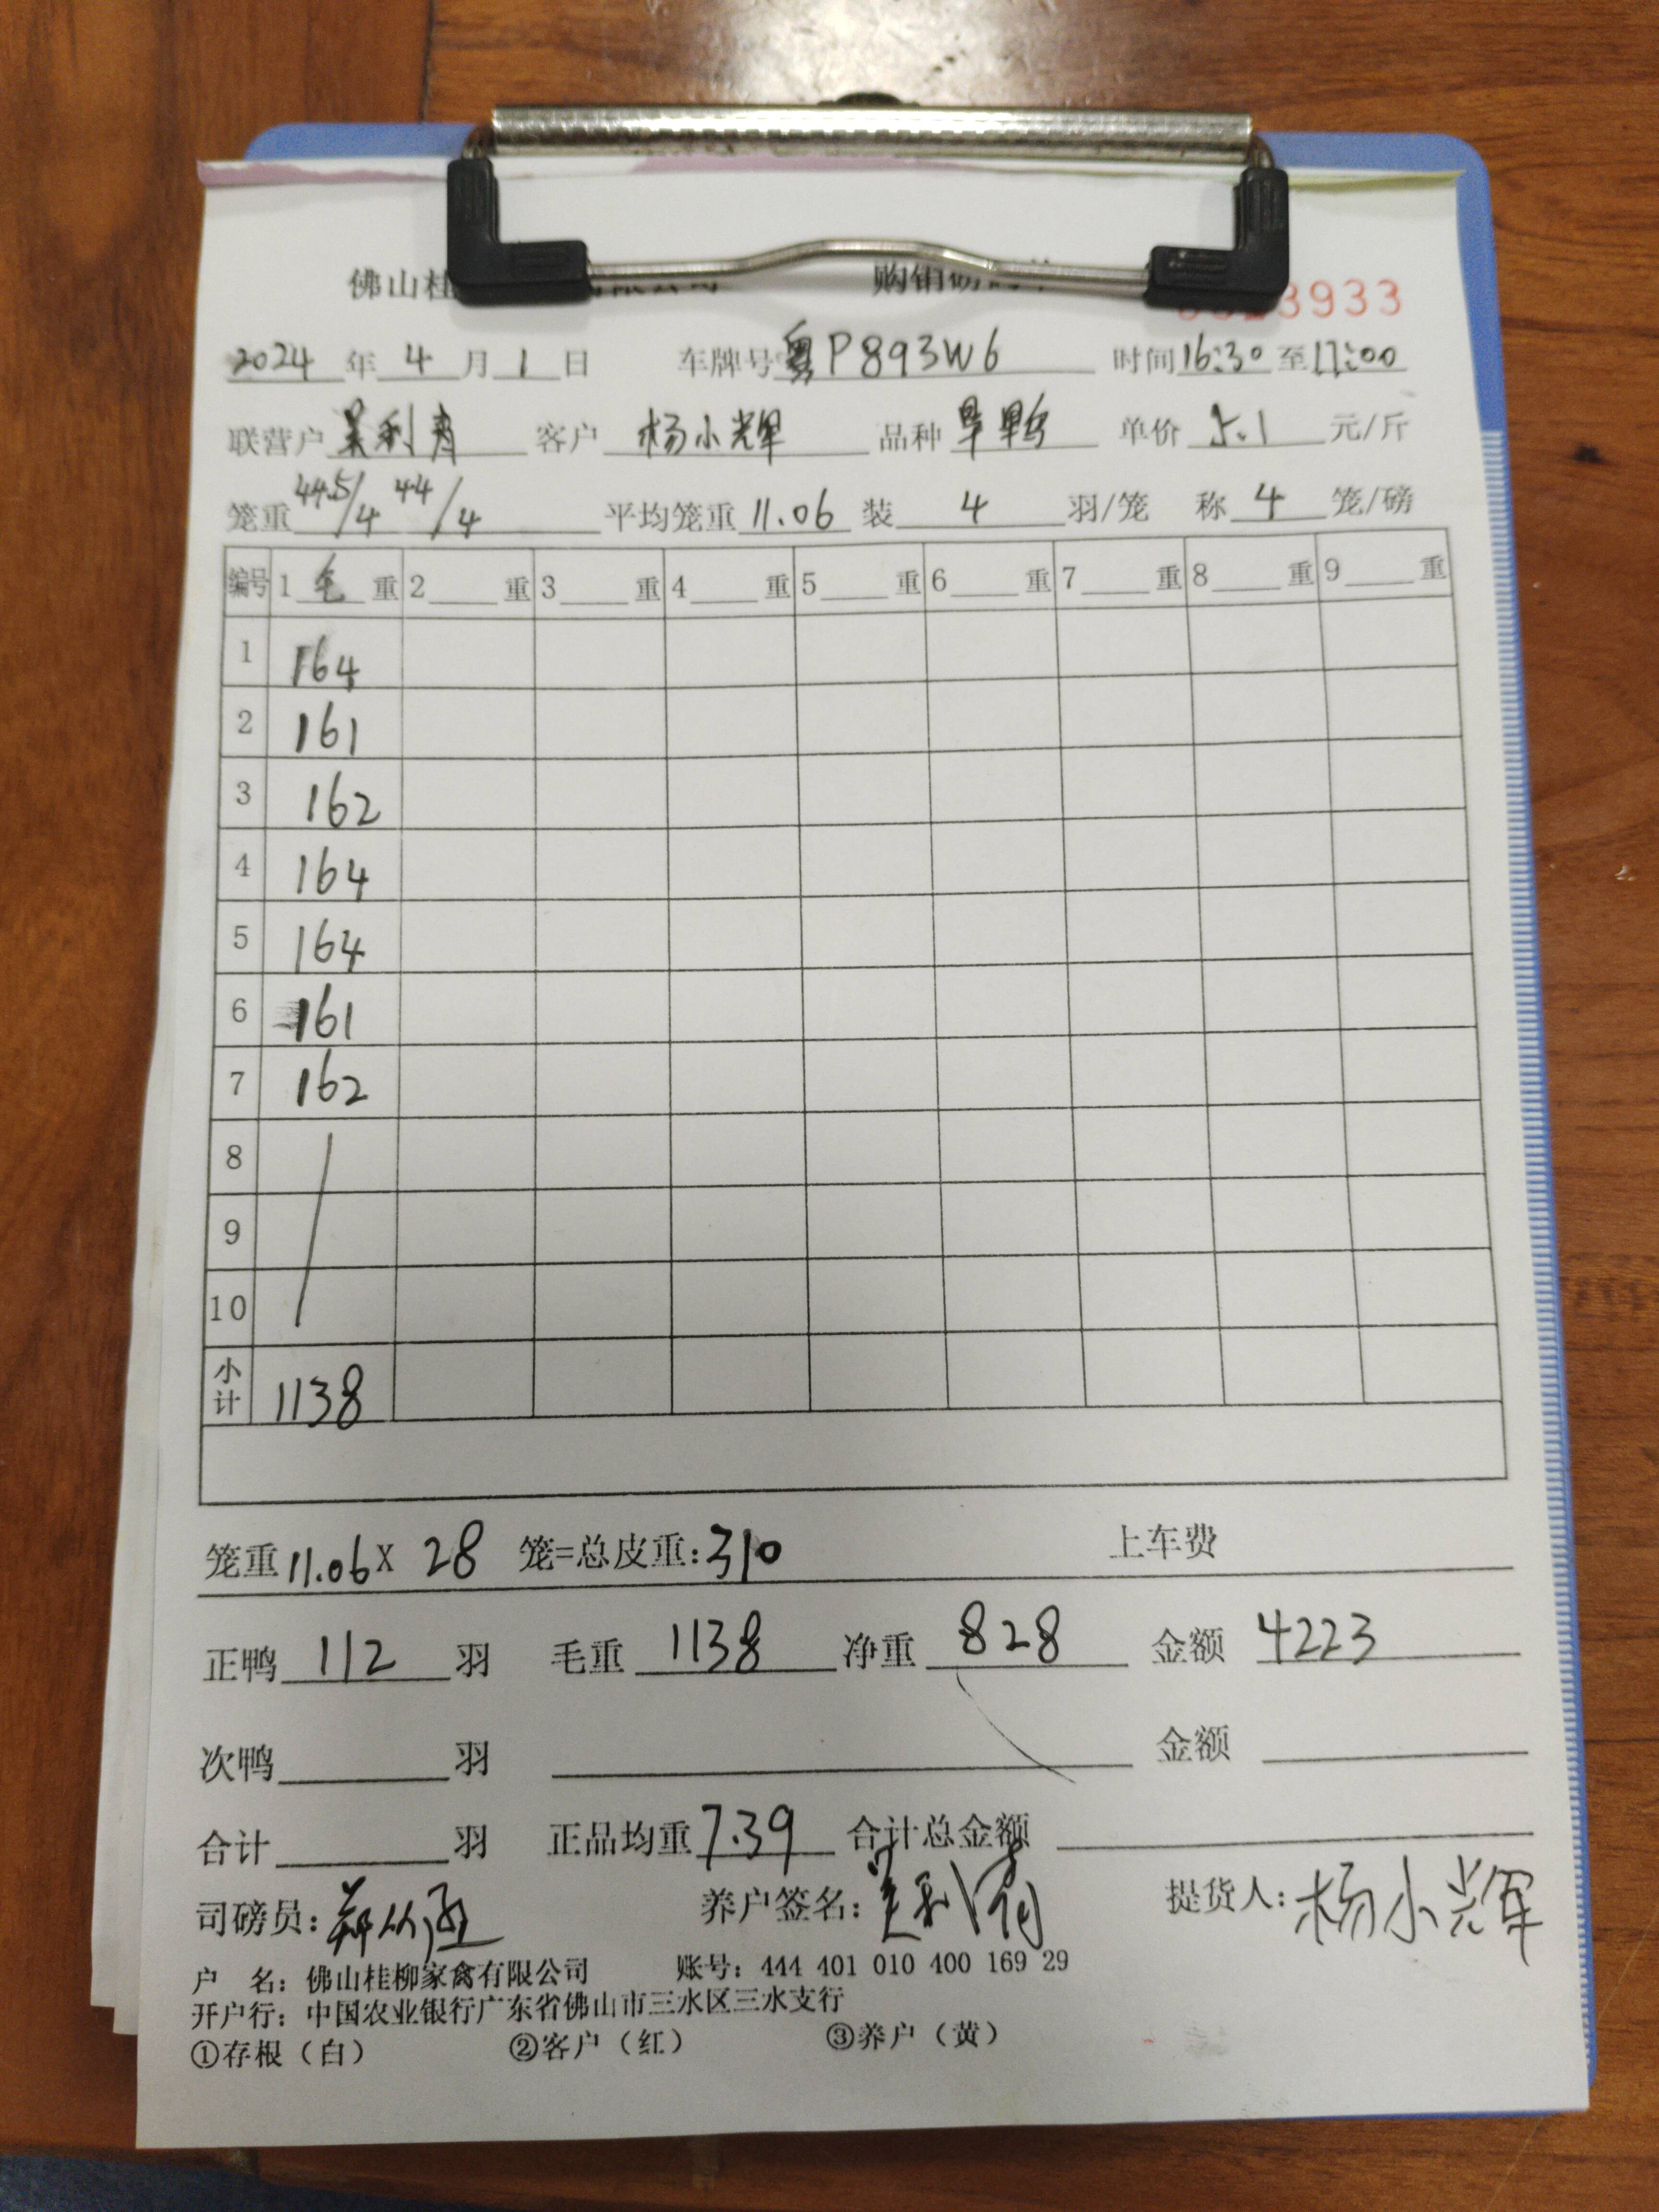 佛山桂 购销磅 3933
2024 年 4 月 1 日 车牌号 粤P893W6 时间 16:30 至 17:00
联营户 客户 杨小辉 品种 旱鸭 单价 5.1 元/斤
笼重 44.5/4 44/4 平均笼重 11.06 装 4 羽/笼 称 4 笼/磅
编号 1 毛 重 2 重 3 重 4 重 5 重 6 重 7 重 8 重 9 重
1 164
2 161
3 162
4 164
5 164
6 161
7 162
8
9
10
小计 1138
笼重 11.06 X 28 笼=总皮重: 310 上车费
正鸭 112 羽 毛重 1138 净重 828 金额 4223
次鸭 羽 金额
合计 羽 正品均重 7.39 合计总金额
司磅员: 养户签名: 提货人: 杨小辉
户 名: 佛山桂柳家禽有限公司 账号: 444 401 010 400 169 29
开户行: 中国农业银行广东省佛山市三水区三水支行
①存根（白） ②客户（红） ③养户（黄）